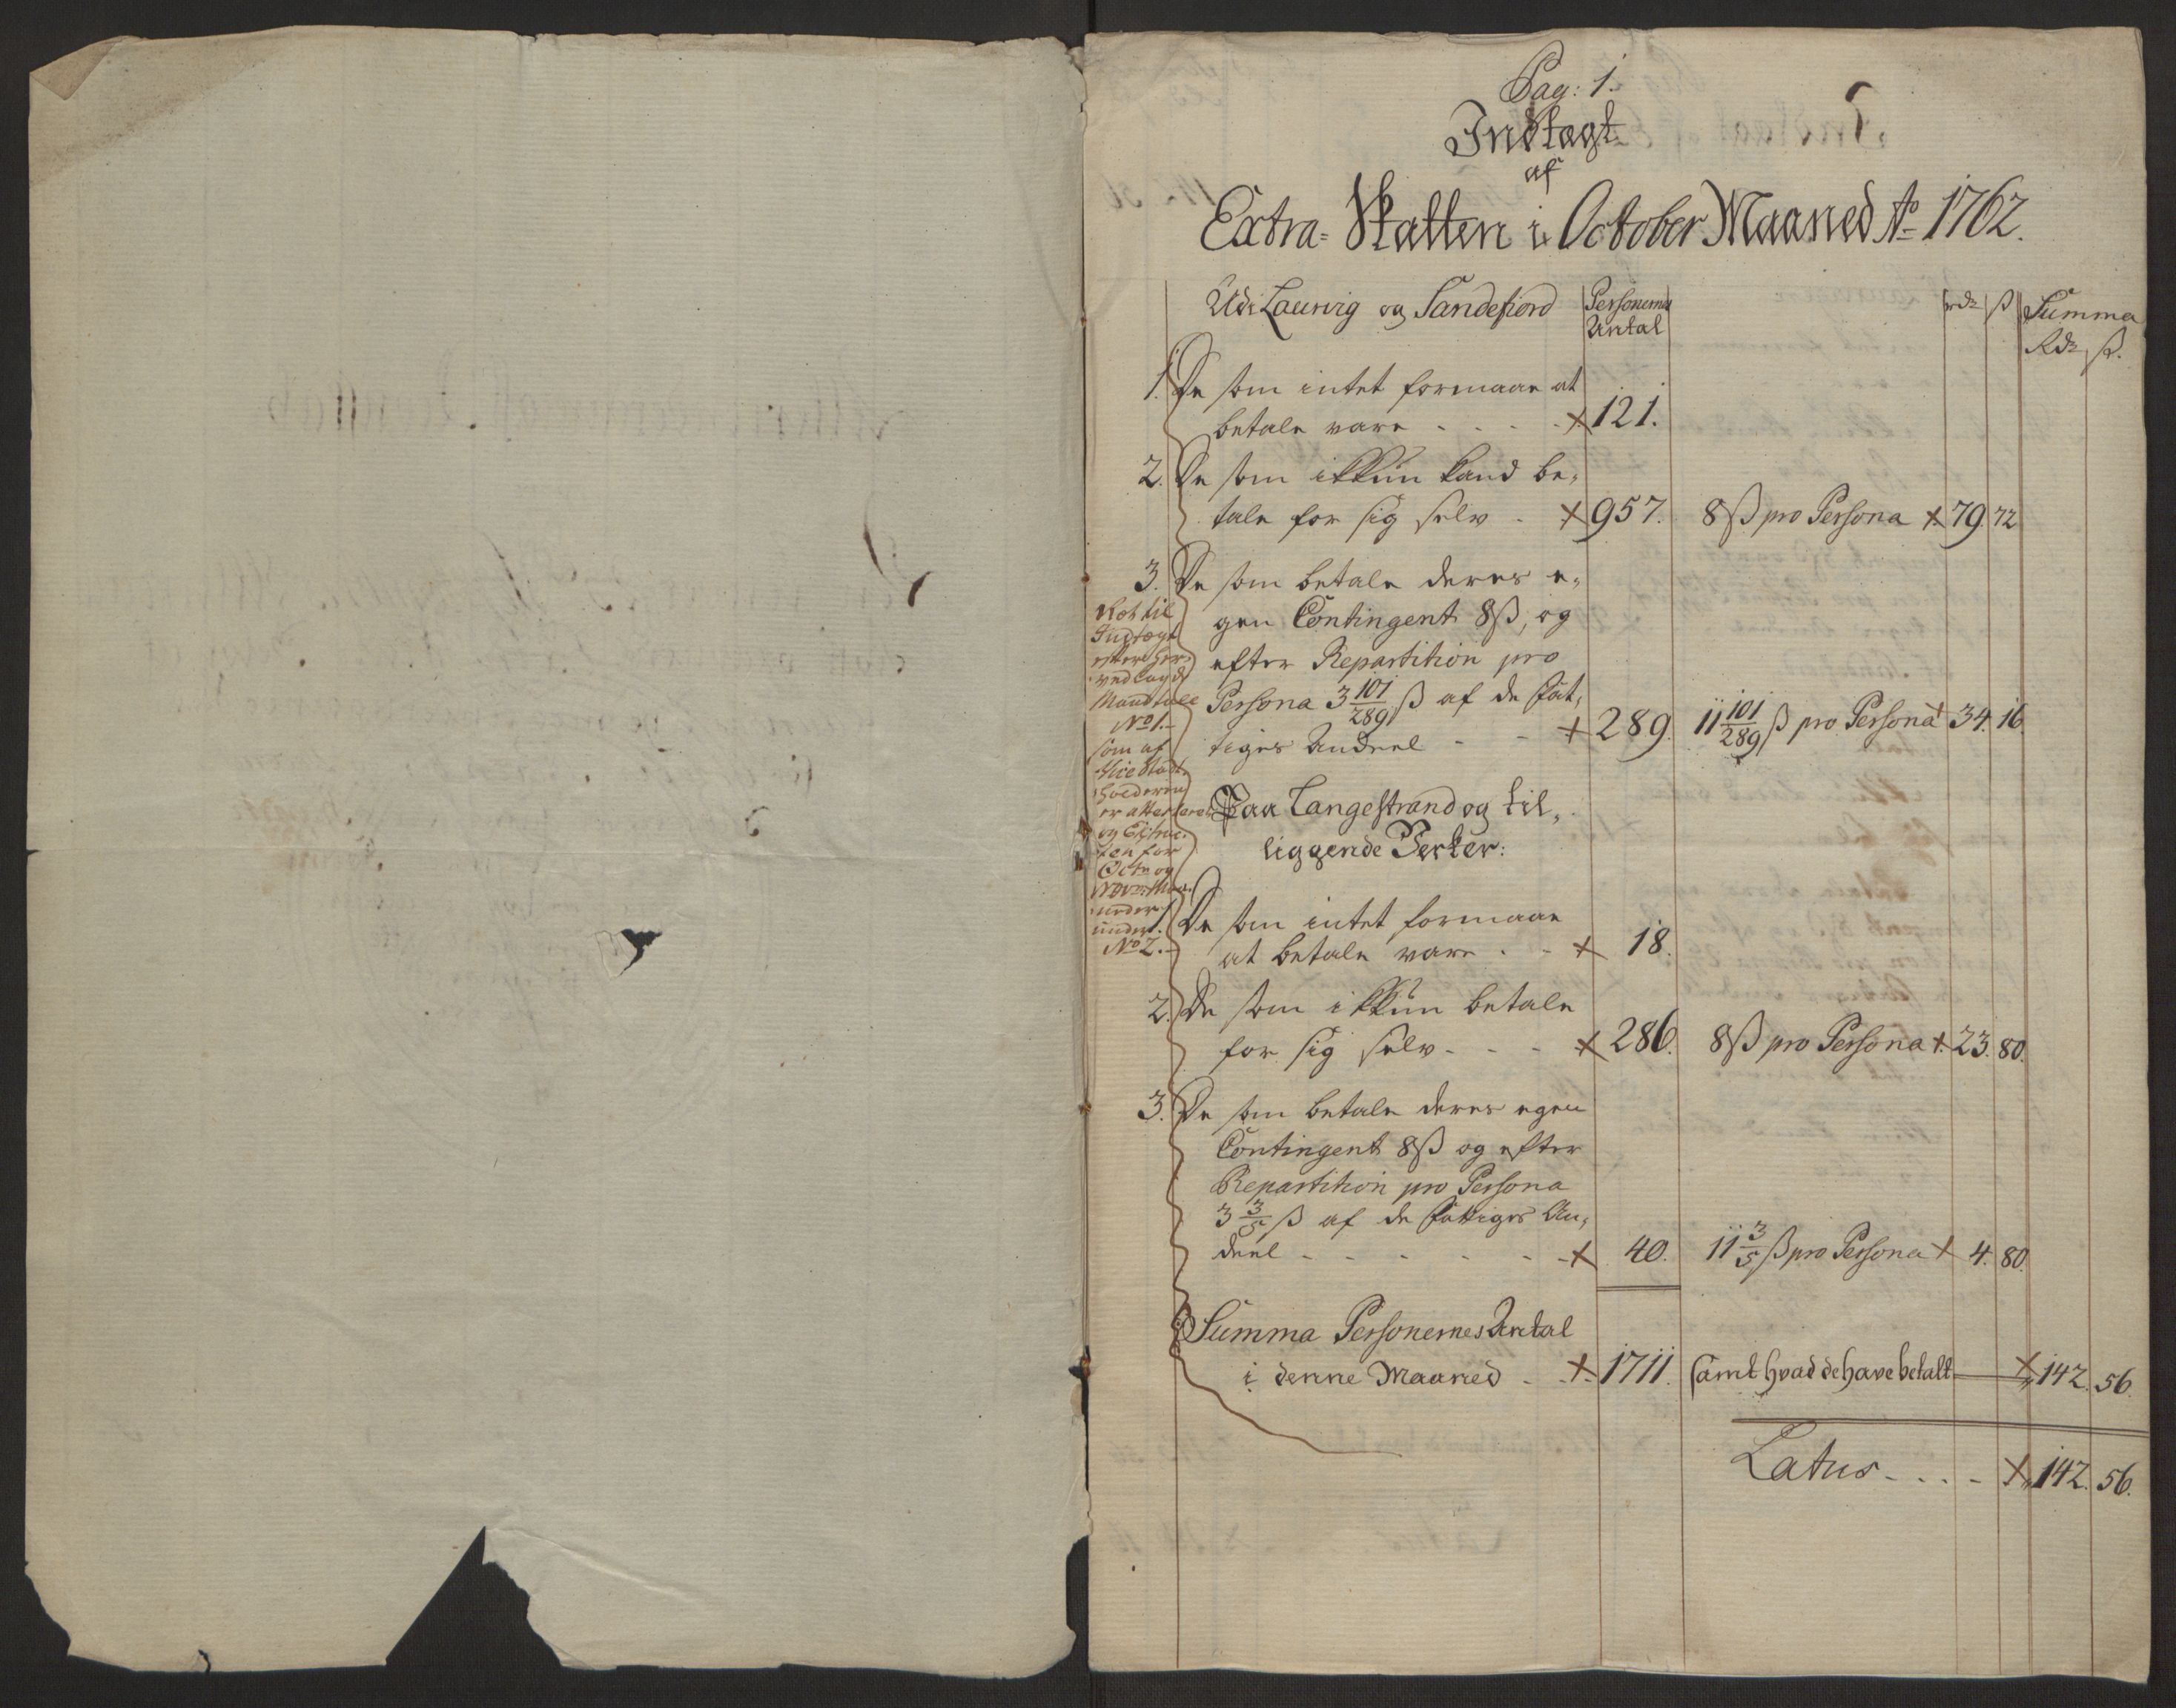 Pag: 1.
Indtægt
af
Extra-Skatten i October Maaned Ao 1762.
Udi Laurvig og Sandefiord
Personernes Antal
rdr ß Summa
Rdr ß.
1. De som intet formaar at
betale vare - - - - 121.
2. De som ikkun kand be-
tale for sig selv - 957. 8 ß pro Persona 79. 72
3. De som betale deres e-
gen Contingent 8 ß, og
efter Repartition pro
Persona 3 101/289 ß af de fat-
tiges Andeel - - 289. 11 101/289 ß pro Persona 34. 16.
Paa Langestrand og til-
liggende Verker:
1. De som intet formaar
at betale vare - - 18.
2. De som ikkun betale
for sig selv - - - 286. 8 ß pro Persona 23. 80.
3. De som betale deres egen
Contingent 8 ß og efter
Repartition pro Persona
3 3/5 ß af de fattiges An-
deel - - - - - - 40. 11 3/5 ß pro Persona 4. 80.
Summa Personernes Antal
i denne Maaned - - 1711. samt hvad de have betalt 142. 56.
Latus - - - - 142. 56.
til
Indtægt
efter her-
ved lagde
Mandtall
No 1.
som af
er attesteret
og
ten for
Octr og
under
No 2.